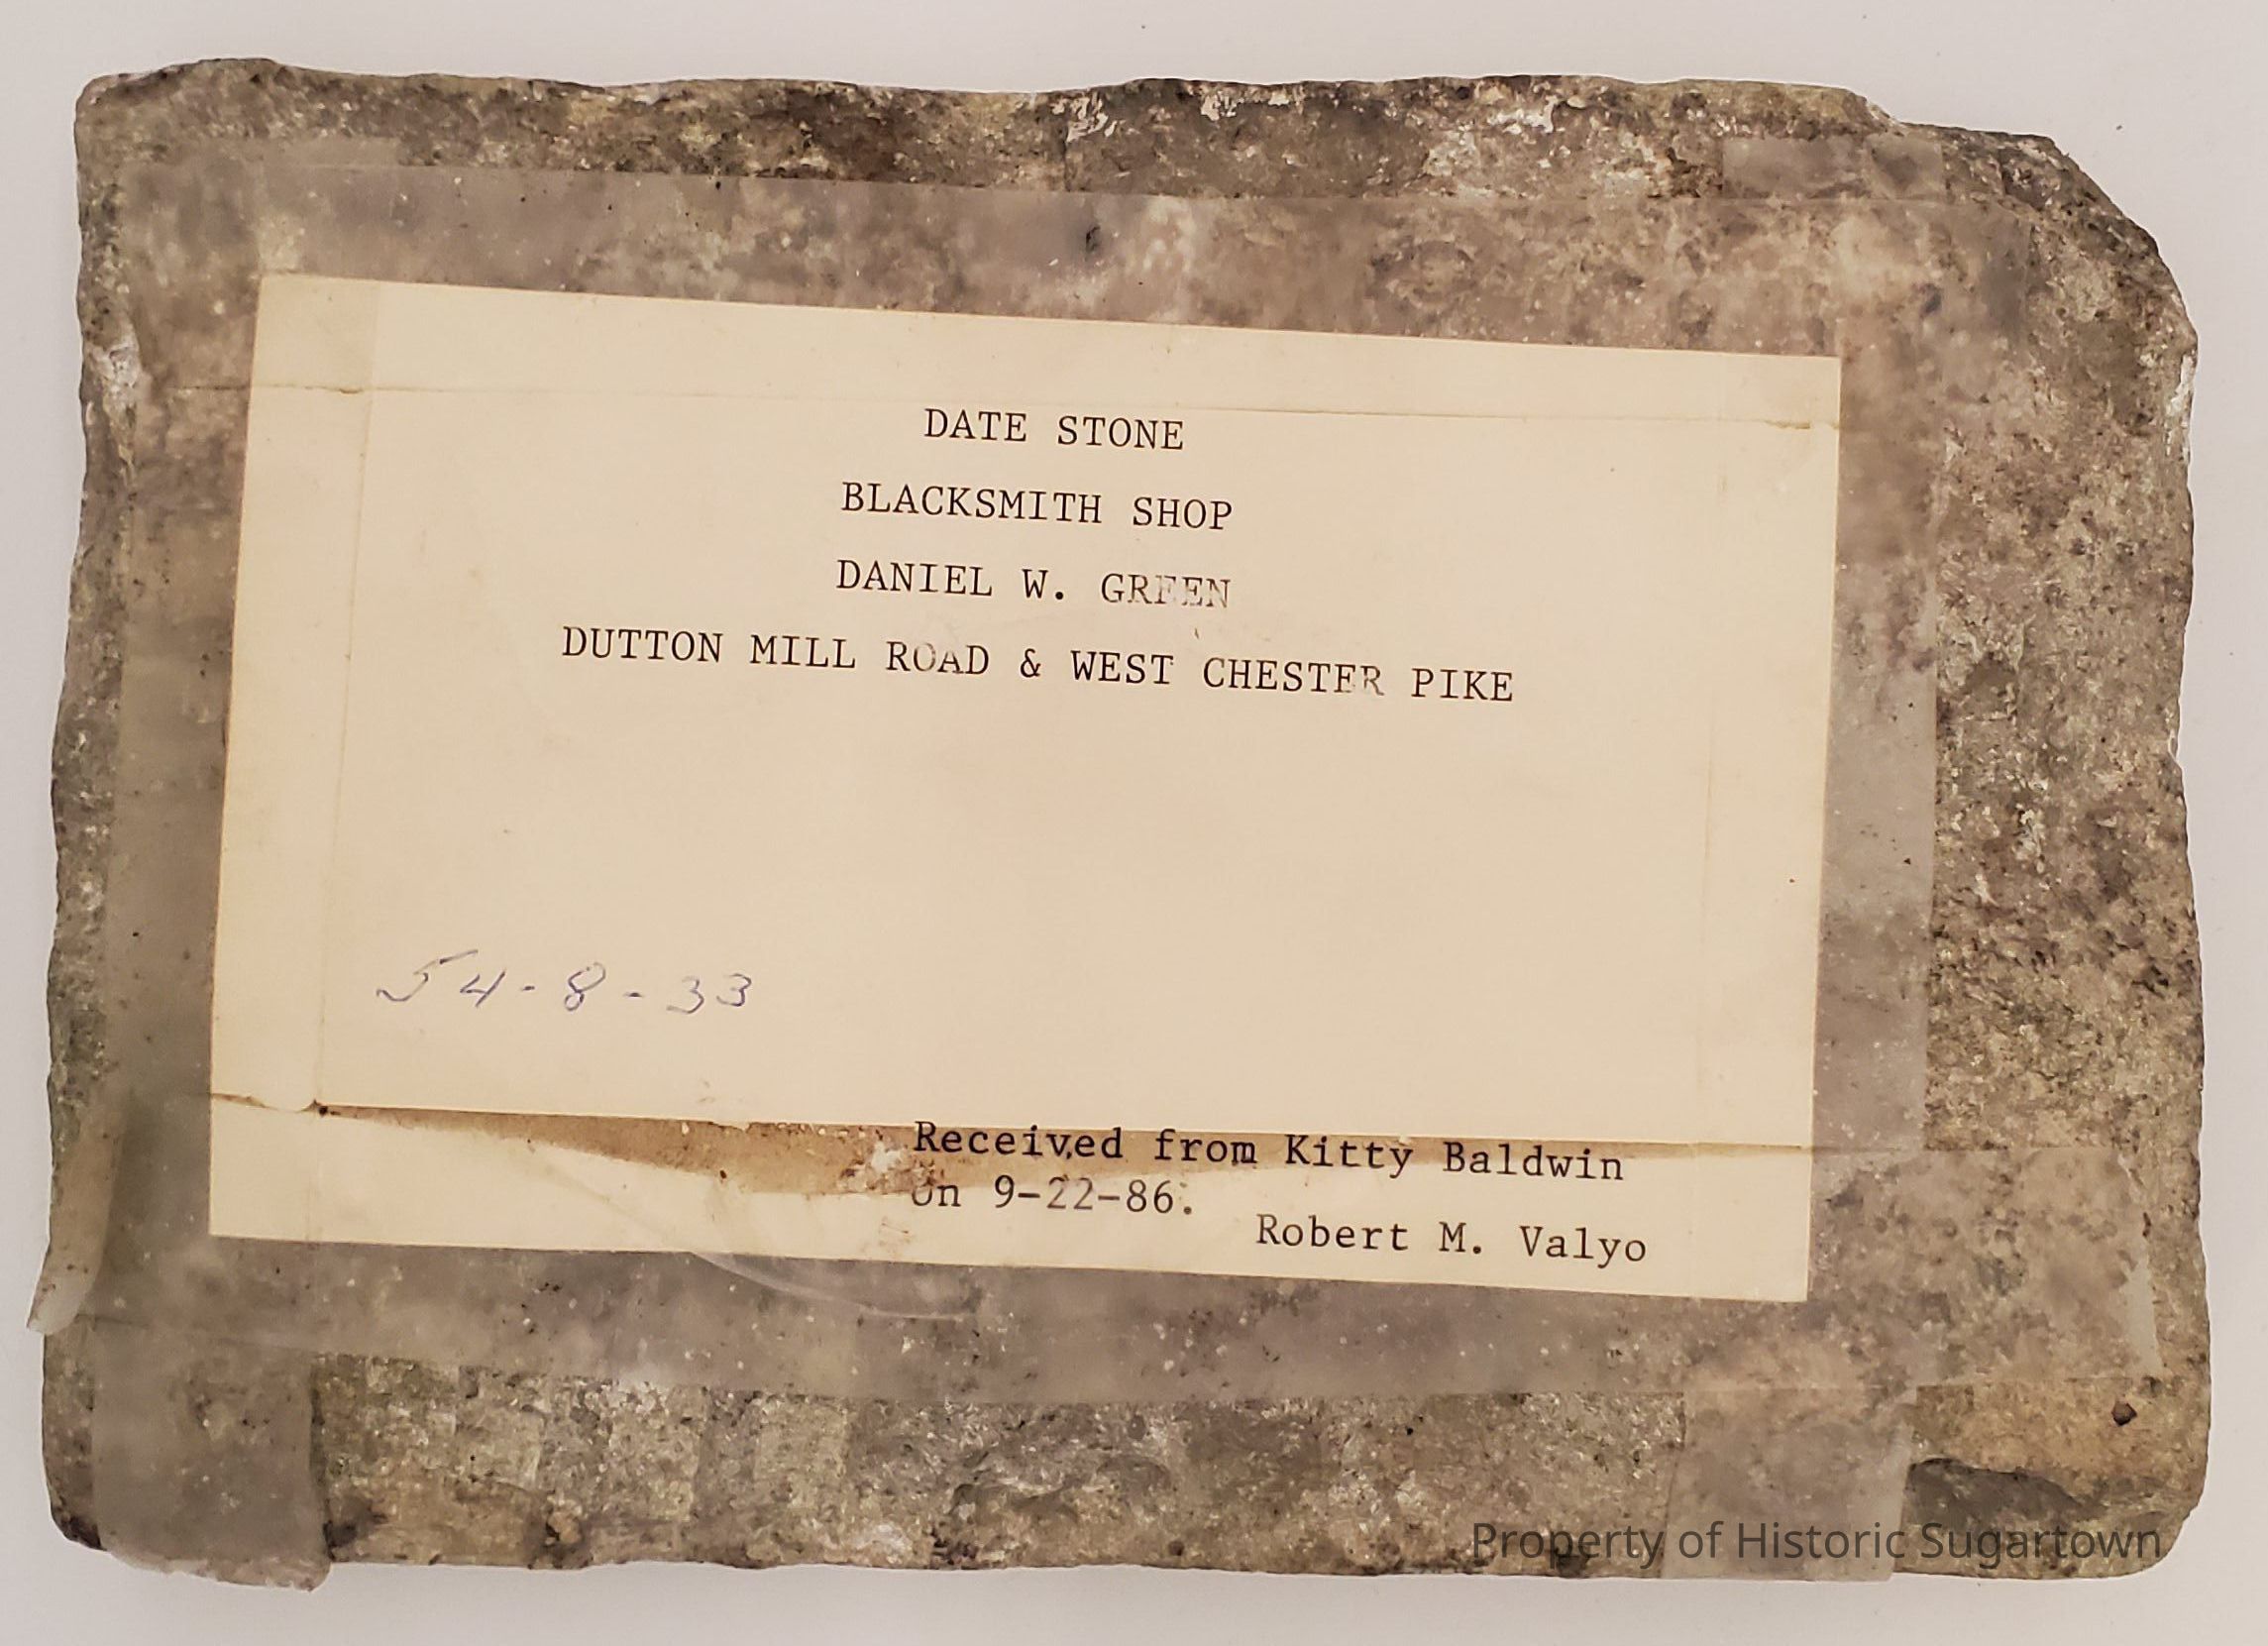 DATE STONE
BLACKSMITH SHOP
DANIEL W. GREEN
DUTTON MILL ROAD & WEST CHESTER PIKE
54-8-33
Received from Kitty Baldwin
on 9-22-86.
Robert M. Valyo
Property of Historic Sugartown